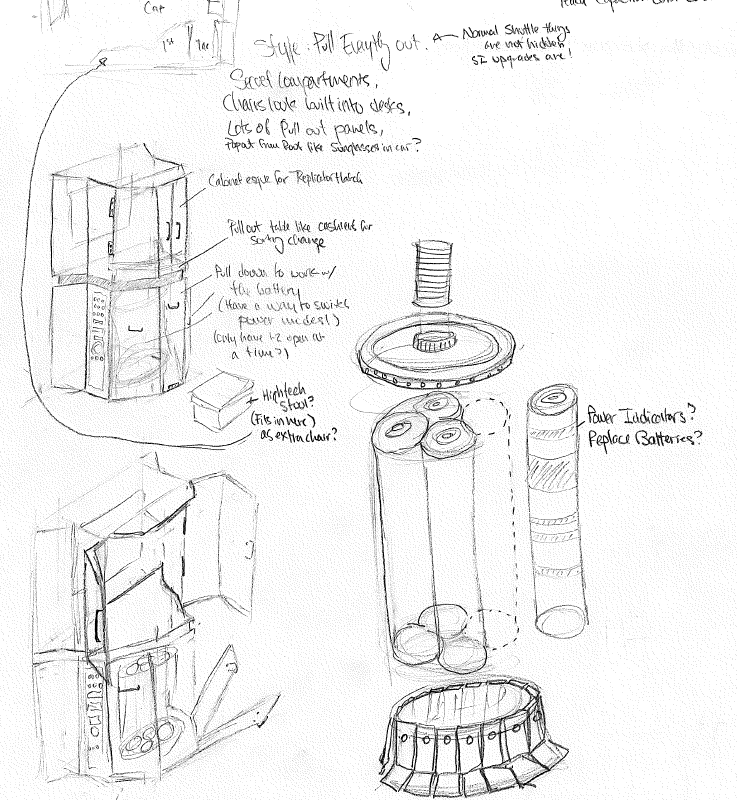 Car
1st
Style: Pull Everything out.
Normal Shuttle things
are not hidden,
SI upgrades are!
Secret Compartments,
Chairs look built into desks,
Lots of Pull out panels,
Popout from Roof like Sunglasses in car?
Cabinet esque for Replicator Hatch
Pull out table like cashiers for
sorting change
Pull down to work w/
the battery
(Have a way to switch
power modes!)
(only have 1-2 open at
a time?)
High tech
Stool?
(Fits in here)
as extra chair?
Power Indicators?
Replace Batteries?